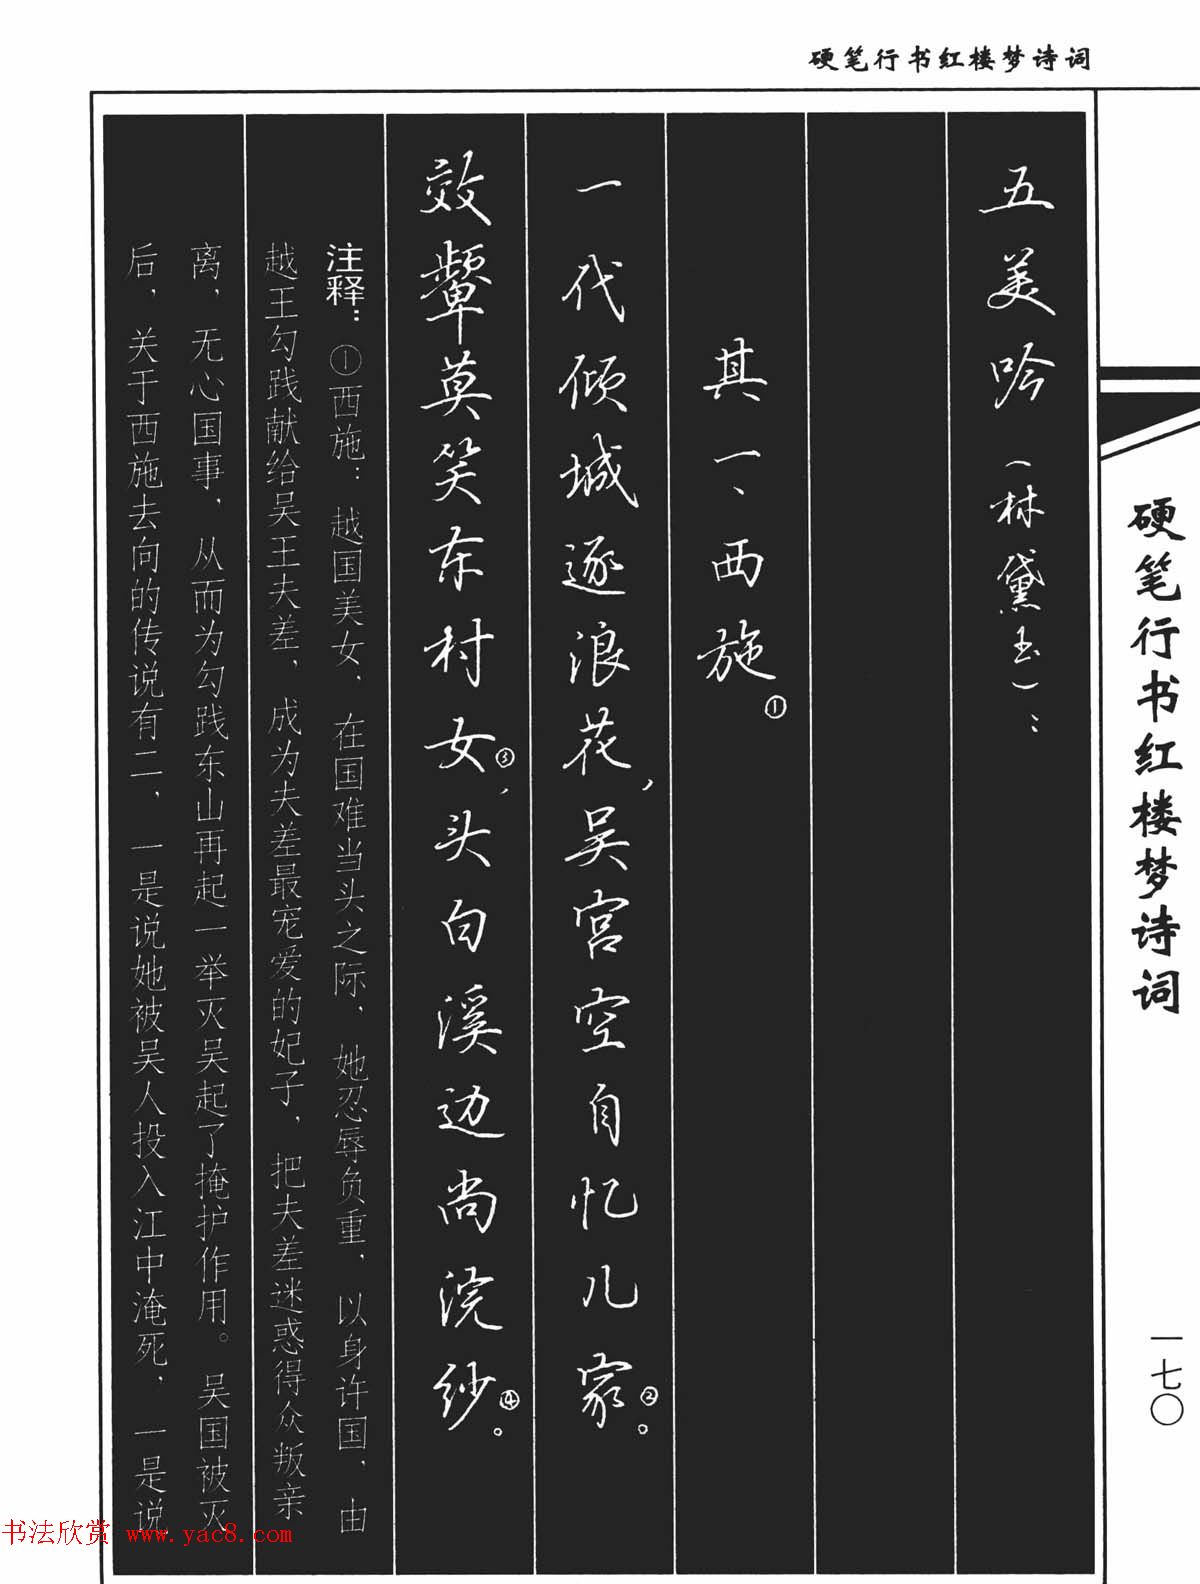 硬笔行书红楼梦诗词
硬笔行书红楼梦诗词
一七〇
五美吟（林黛玉）：
其一、西施①
一代倾城逐浪花，吴宫空自忆儿家②。
效颦莫笑东村女③，头白溪边尚浣纱④。
注释：①西施：越国美女、在国难当头之际，她忍辱负重，以身许国，由
越王勾践献给吴王夫差，成为夫差最宠爱的妃子，把夫差迷惑得众叛亲
离，无心国事，从而为勾践东山再起一举灭吴起了掩护作用。吴国被灭
后，关于西施去向的传说有二，一是说她被吴人投入江中淹死，一是说
书法欣赏 www.yac8.com